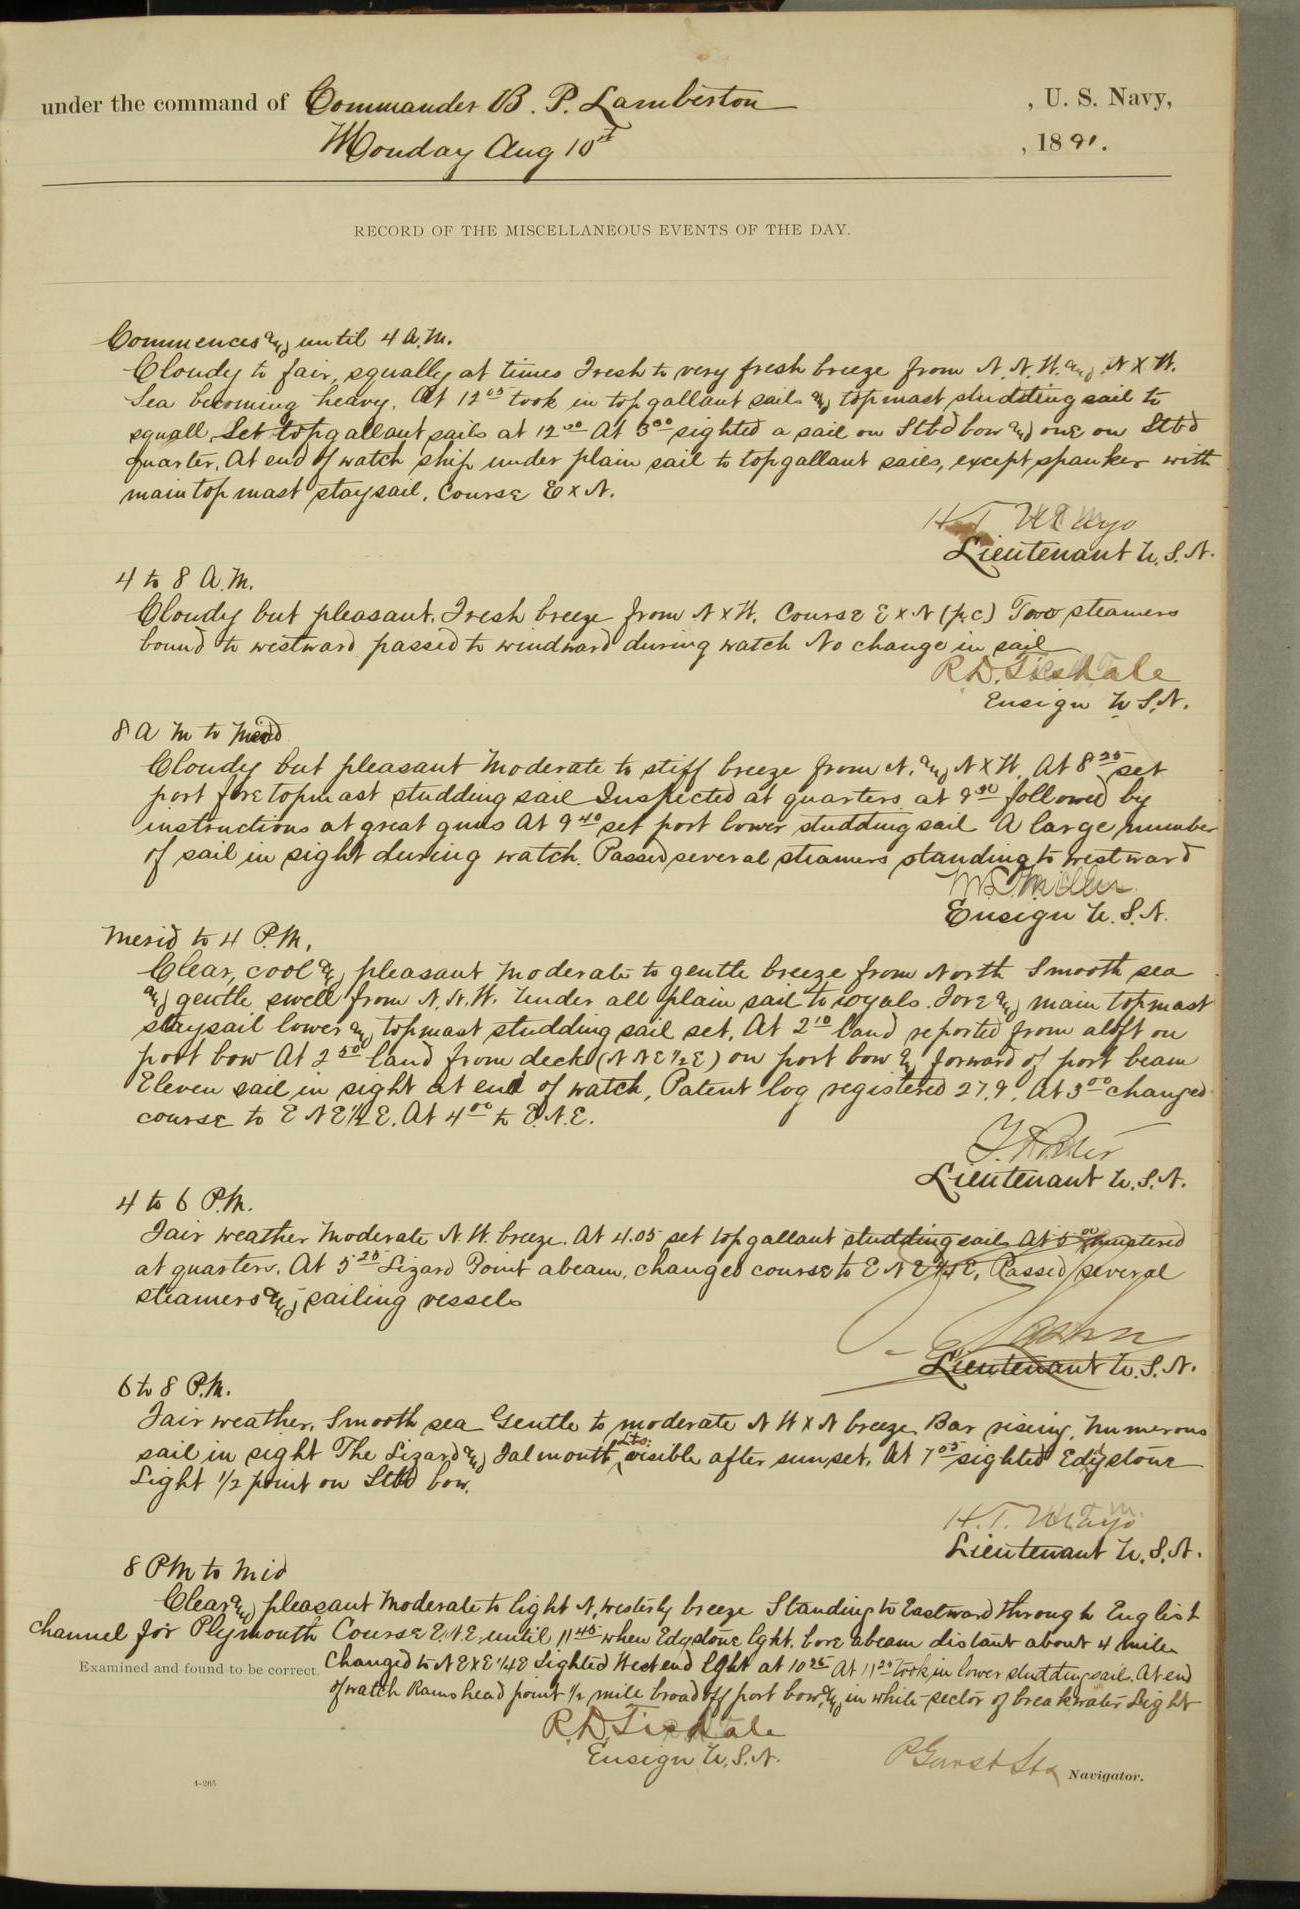 under the command of Commander B. P. Lamberton , U. S. Navy,
Monday Aug 10th , 1891.
RECORD OF THE MISCELLANEOUS EVENTS OF THE DAY.
Commences and until 4 A.M.
Cloudy to fair, squally at times Fresh to very fresh breeze from N.N.W. and N x W.
Sea becoming heavy. At 12 05 took in topgallant sails and topmast studding sail to
squall. Set topgallant sails at 12 30 At 3 00 sighted a sail on Stbd bow and one on Stbd
quarter. At end of watch ship under plain sail to topgallant sails, except spanker with
main top mast staysail. Course E x N.
H. T. Mayo
Lieutenant U.S.N.
4 to 8 A.M.
Cloudy but pleasant. Fresh breeze from N x W. Course E x N (p.c) Two steamers
bound to westward passed to windward during watch No change in sail
R.D. Tisdale
Ensign U.S.N.
8 A M to Merid
Cloudy but pleasant Moderate to stiff breeze from N. and N x W. At 8 25 set
port fore topmast studding sail Inspected at quarters at 9 30 followed by
instructions at great guns At 9 40 set port lower studding sail A large number
of sail in sight during watch. Passed several steamers standing to westward
Miller
Ensign U.S.N.
Merid to 4 P.M.
Clear, cool and pleasant Moderate to gentle breeze from North Smooth sea
and gentle swell from N.N.W. Under all plain sail to royals. Fore and main topmast
staysail lower and topmast studding sail set. At 2 10 land reported from aloft on
port bow At 2 50 land from deck (N N E 1/2 E) on port bow and forward of port beam
Eleven sail in sight at end of watch, Patent log registered 27.9. At 3 00 changed
course to E N E 1/2 E. At 4 00 to E.N.E.
Lieutenant U.S.N.
4 to 6 P.M.
Fair weather Moderate N.W. breeze. At 4.05 set topgallant studding sails At 5 00 mustered
at quarters. At 5 25 Lizard Point abeam, changed course to E N E 3/4 E. Passed several
steamers and sailing vessels
Lieutenant U.S.N.
6 to 8 P.M.
Fair weather. Smooth sea Gentle to moderate N W x N breeze. Bar rising. Numerous
sail in sight The Lizard and Falmouth Lts. visible after sunset. At 7 05 sighted Edystone
Light 1/2 point on Stbd bow.
H. T. Mayo
Lieutenant U.S.N.
8 PM to Mid
Clear and pleasant Moderate to light N. westerly breeze Standing to Eastward through English
channel for Plymouth Course E.N.E. until 11 45 when Edystone lght. bore abeam distant about 4 miles
Examined and found to be correct. Changed to N E x E 1/4 E Sighted West end Lght at 10 25 At 11 25 took in lower studding sail. At end
of watch Rams head point 1/2 mile broad off port bow, and in white sector of breakwater Light
R.D. Tisdale
Ensign U.S.N.
Navigator.
4-265